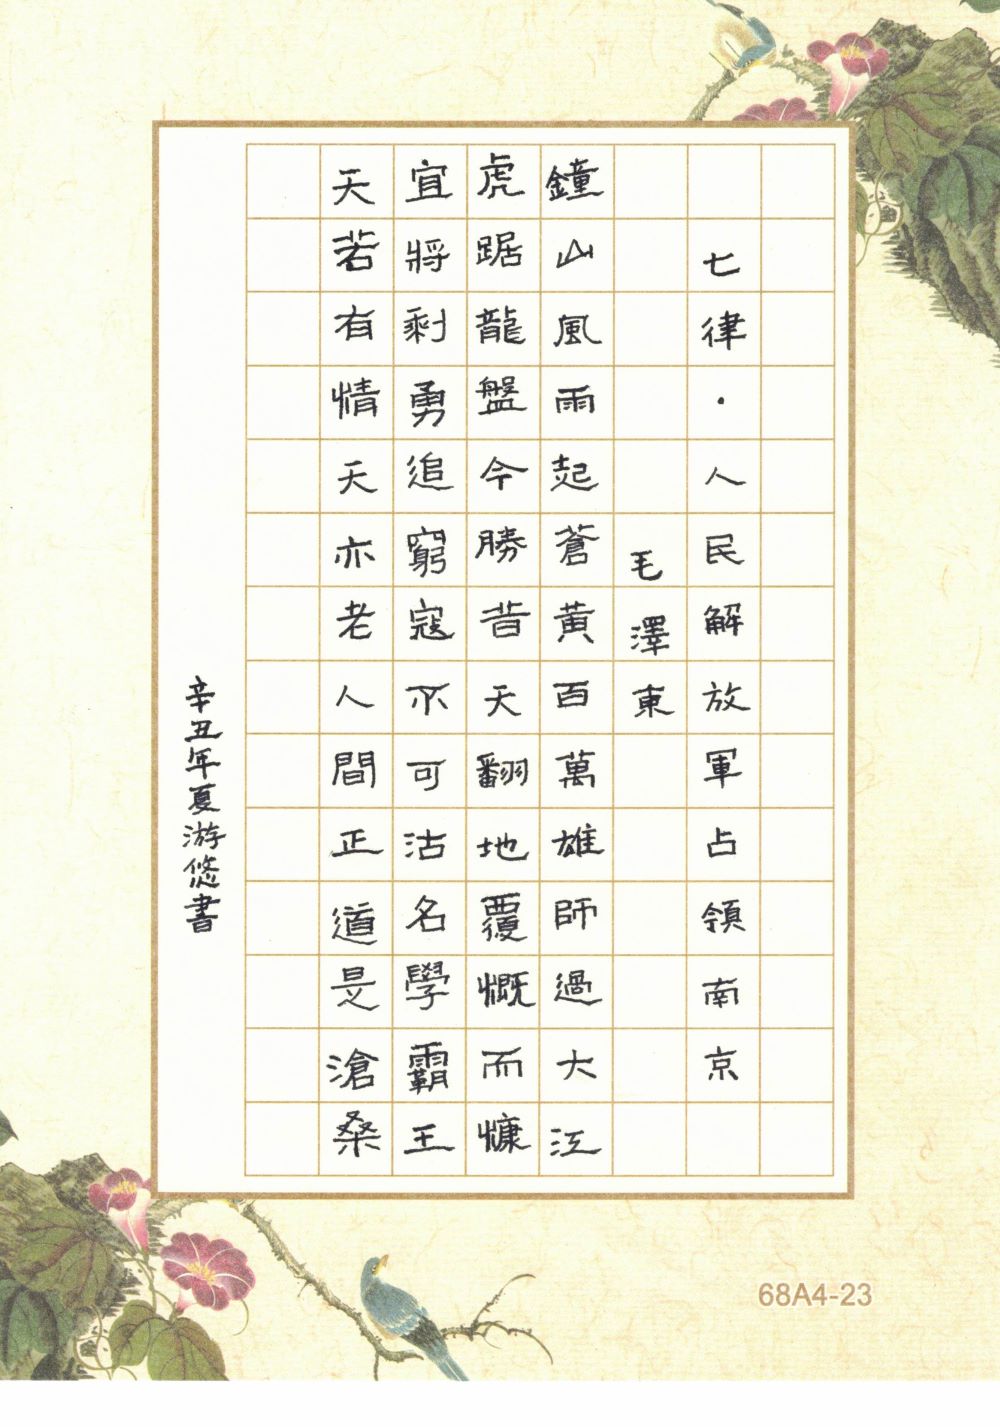 七律·人民解放軍占領南京
毛澤東
鐘山風雨起蒼黃百萬雄師過大江
虎踞龍盤今勝昔天翻地覆慨而慷
宜將剩勇追窮寇不可沽名學霸王
天若有情天亦老人間正道是滄桑
辛丑年夏游悠書
68A4-23